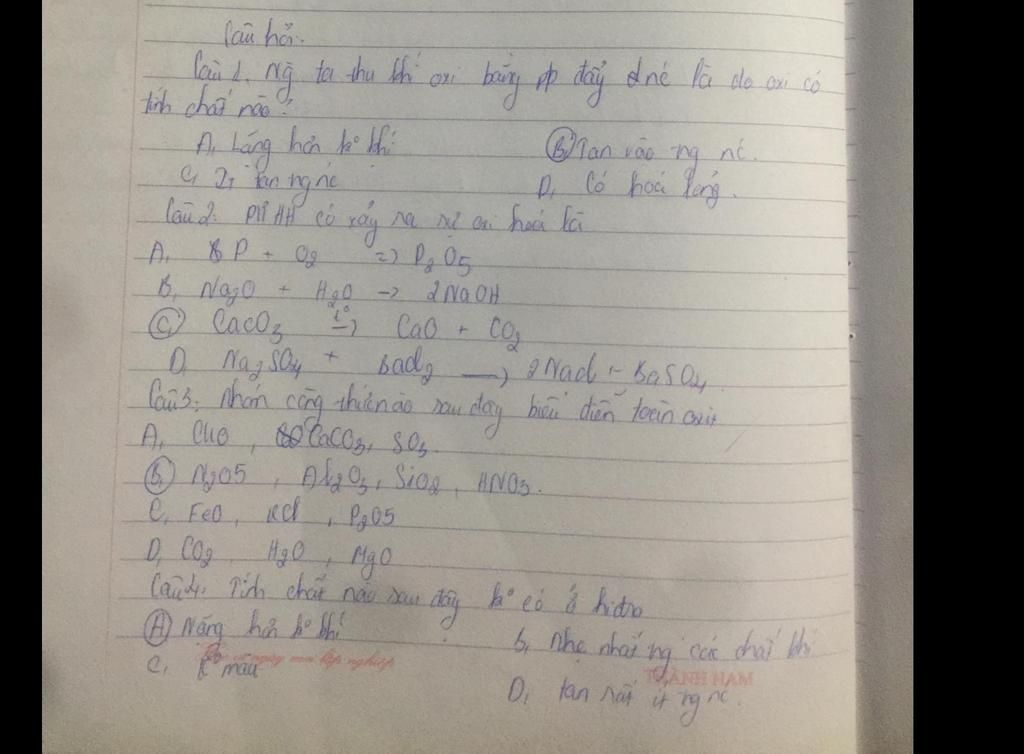 Câu hỏi.
Câu 1. Ng ta thu khí oxi bằng pp đẩy nc là do oxi có
tính chất nào?
A, Lắng hơn kº khí B, Tan vào ng nc.
C, Ít tan ng nc D, Có hoá lỏng.
Câu 2: PƯHH có xảy ra sự oxi hoá là
A, P + O2 => P2O5
B, Na2O + H2O -> 2NaOH
C, CaCO3 tº -> CaO + CO2
D, Na2SO4 + BaCl2 -> 2NaCl + BaSO4
Câu 3: Nhóm công thức nào sau đây biểu diễn toàn oxit
A, CuO, CaCO3, SO3.
B, N2O5, Al2O3, SiO2, HNO3.
C, FeO, KCl, P2O5
D, CO2 H2O, MgO
Câu 4. Tính chất nào sau đây kº có ở hidro
A, Nặng hơn kº khí B, Nhẹ nhất ng các chất khí
C, Kº màu D, tan rất ít ng nc.
THÀNH NAM